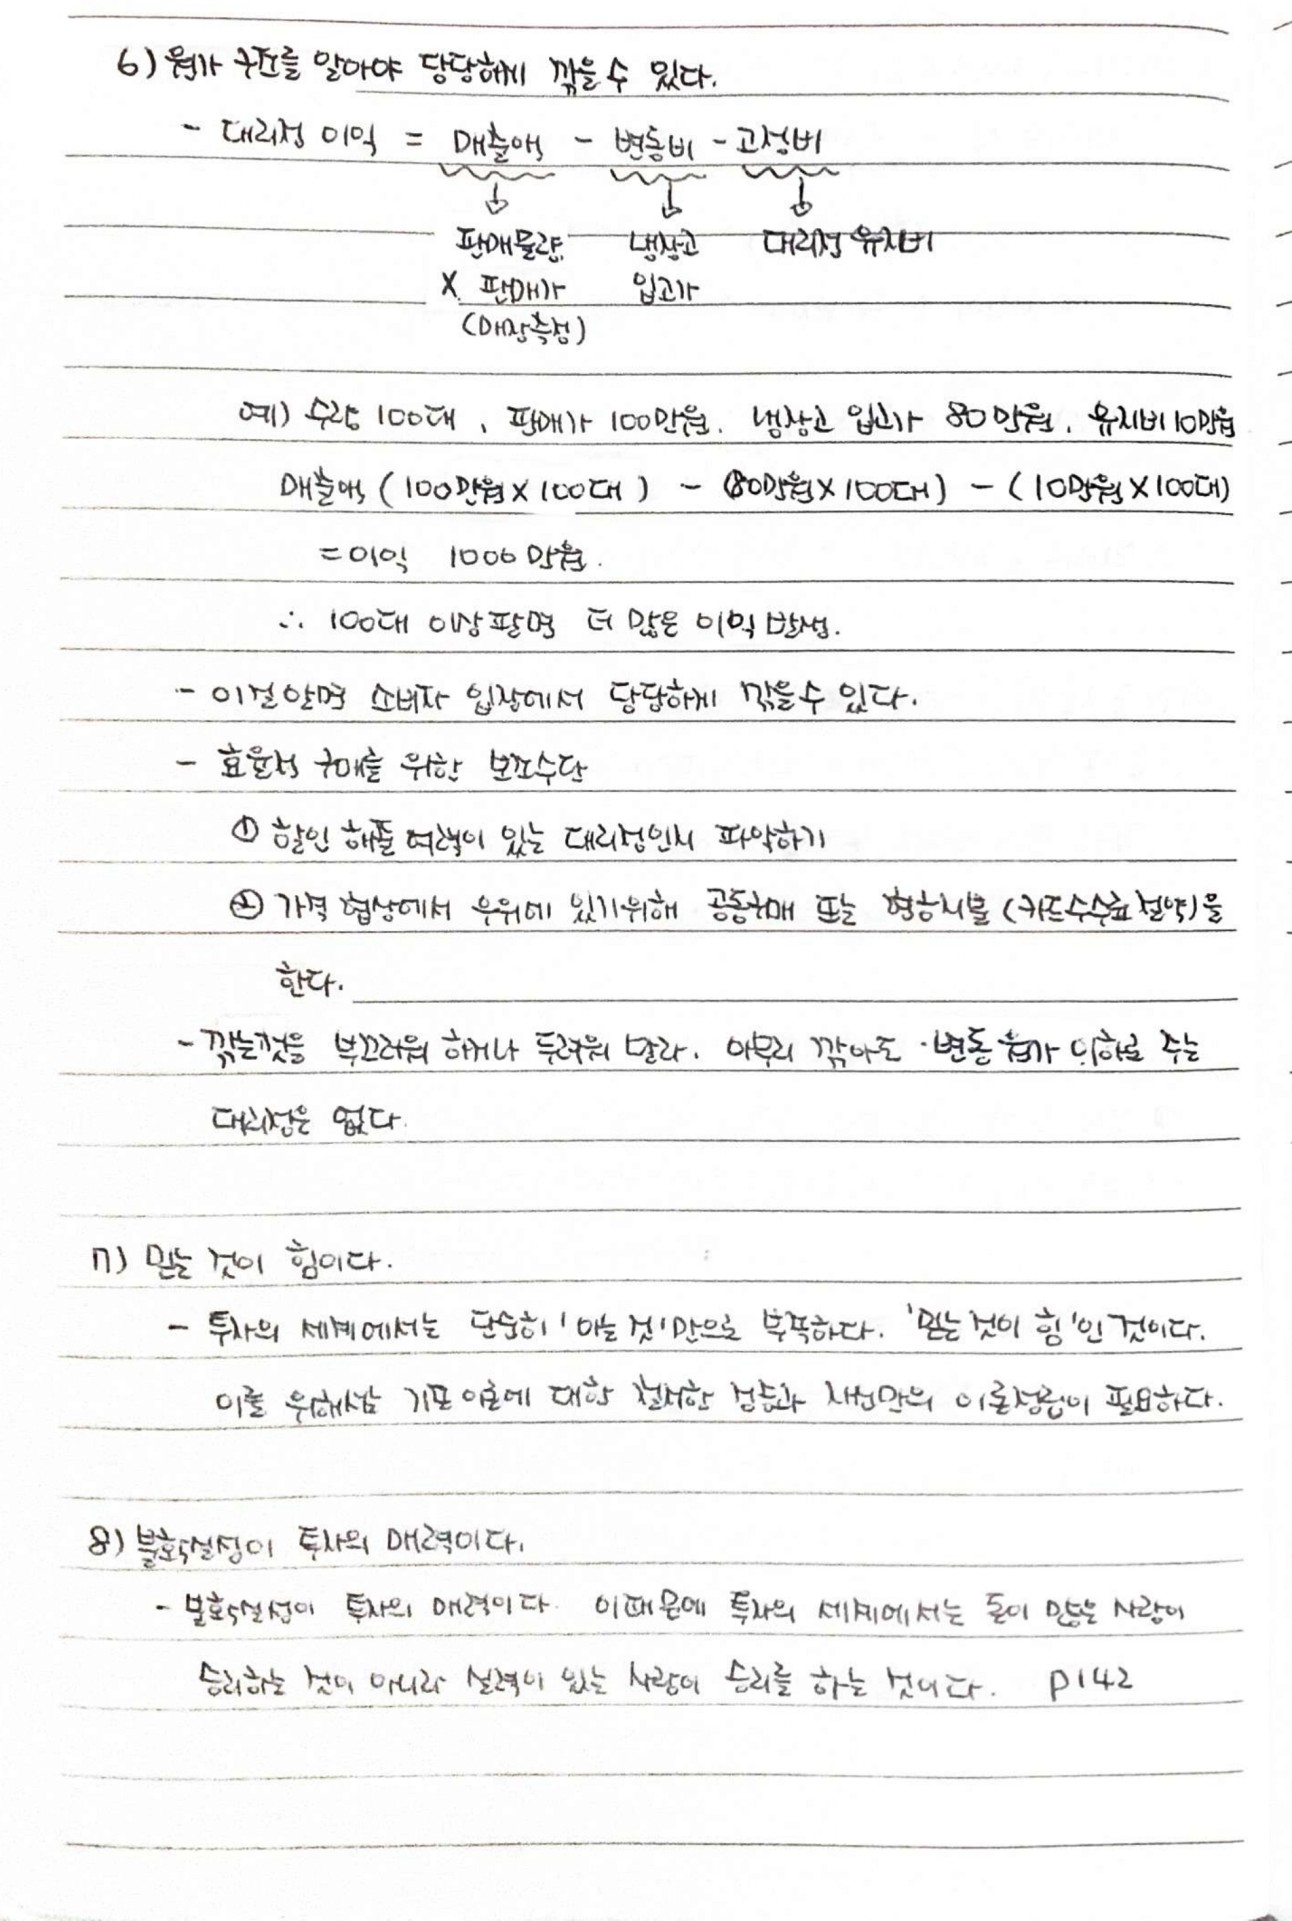 6) 원가 구조를 알아야 당당하게 깎을 수 있다.
- 대리점 이익 = 매출액 - 변동비 - 고정비
판매물량 냉장고 대리점 유지비
X 판매가 입고가
(매장측정)
예) 수량 100대, 판매가 100만원. 냉장고 입고가 80만원. 유지비 10만원
매출액 (100만원 X 100대) - (80만원 X 100대) - (10만원 X 100대)
= 이익 1000만원.
∴ 100대 이상 팔면 더 많은 이익 발생.
- 이걸 알면 소비자 입장에서 당당하게 깎을 수 있다.
- 효율적 구매를 위한 보조수단
① 할인 해줄 여력이 있는 대리점인지 파악하기
② 가격 협상에서 우위에 있기위해 공동구매 또는 현금지불 (카드수수료 절약)을
한다.
- 깎는것을 부끄러워 하거나 두려워 말라. 아무리 깎아도 변동 원가 이하로 주는
대리점은 없다.
7) 믿는 것이 힘이다.
- 투자의 세계에서는 단순히 '아는 것'만으로 부족하다. '믿는 것이 힘'인 것이다.
이를 위해선 기존 이론에 대한 철저한 검증과 자신만의 이론정립이 필요하다.
8) 불확실성이 투자의 매력이다.
- 불확실성이 투자의 매력이다. 이 때문에 투자의 세계에서는 돈이 많은 사람이
승리하는 것이 아니라 실력이 있는 사람이 승리를 하는 것이다. p142